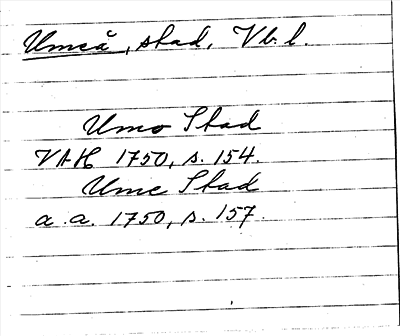 Umeå, stad, Vb. l.
Umo Stad
VAH 1750, s. 154.
Ume Stad
a. a. 1750, s. 157.